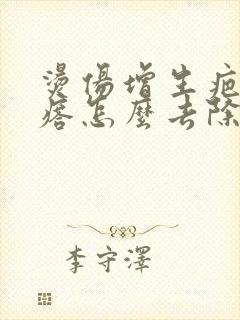 燙傷增生疤
痞怎麼去除
李守澤